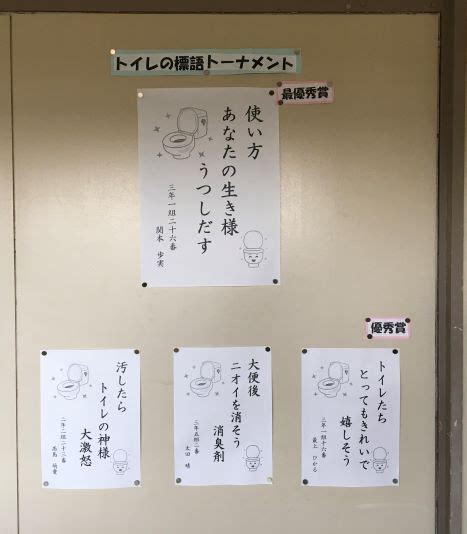 トイレの標語トーナメント
最優秀賞
使い方
あなたの生き様
うつしだす
三年一組二十六番
関本 歩実
優秀賞
トイレたち
とってもきれいで
嬉しそう
三年一組十六番
最上 ひかる
大便後
ニオイを消そう
消臭剤
三年五組二番
太田 晴
汚したら
トイレの神様
大激怒
二年二組二十三番